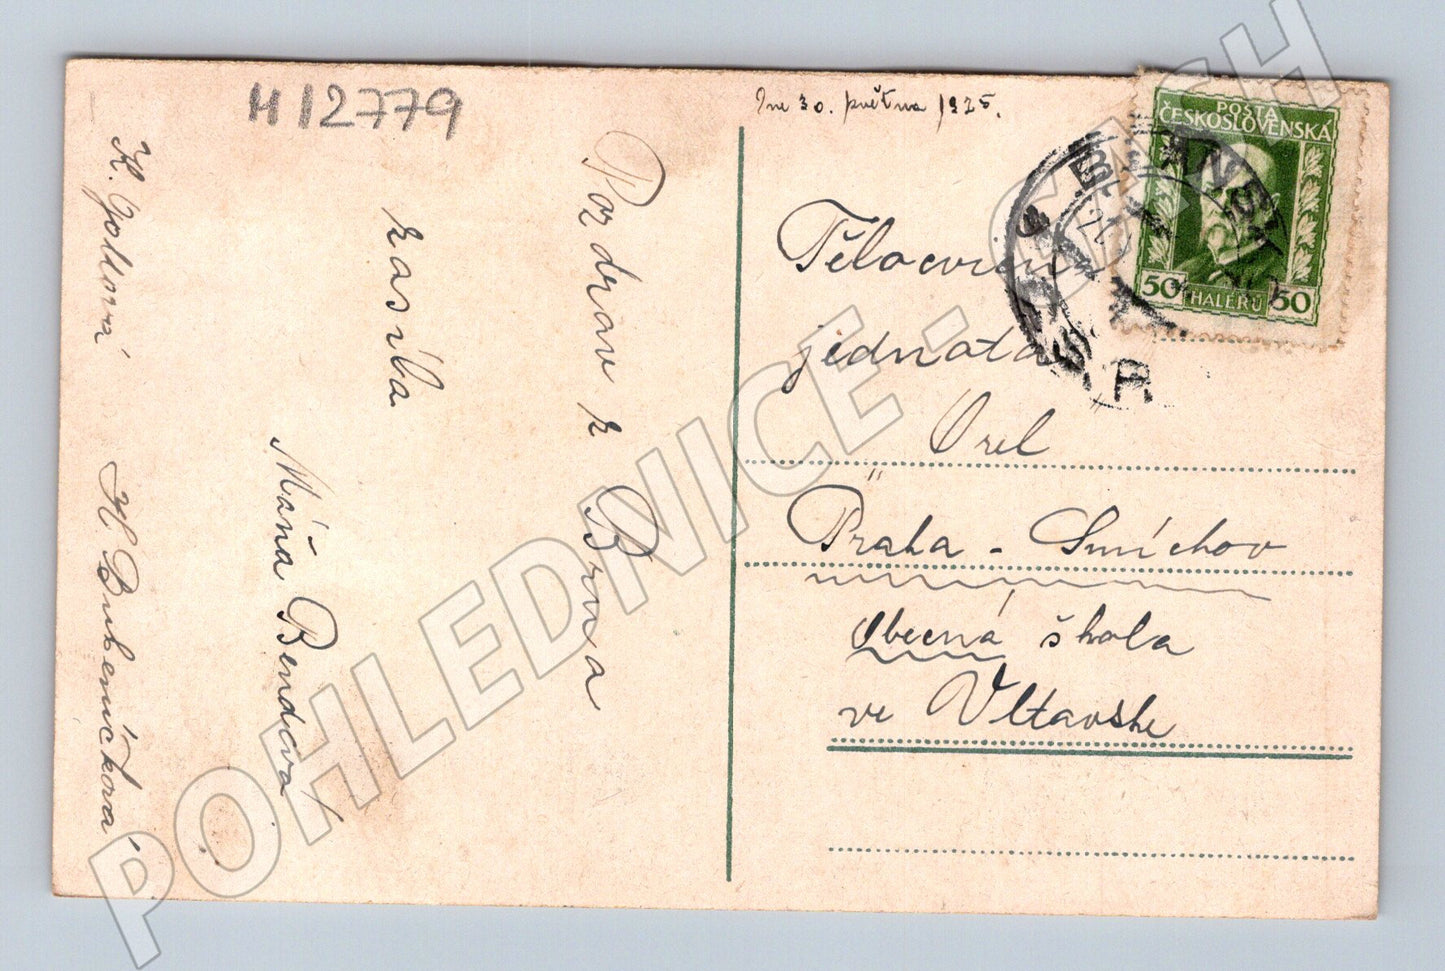 H 12779
Dne 30. května 1925.
Pozdrav z Brna
zasílá
Máňa Bendová
H Bubeníčková
POSTA
ČESKOSLOVENSKÁ
50 HALÉŘŮ 50
BLANSKO
ČSR
Tělocvičná
jednota
Orel
Praha - Smíchov
Obecná škola
ve Vltavske
POHLEDNICE - CASH